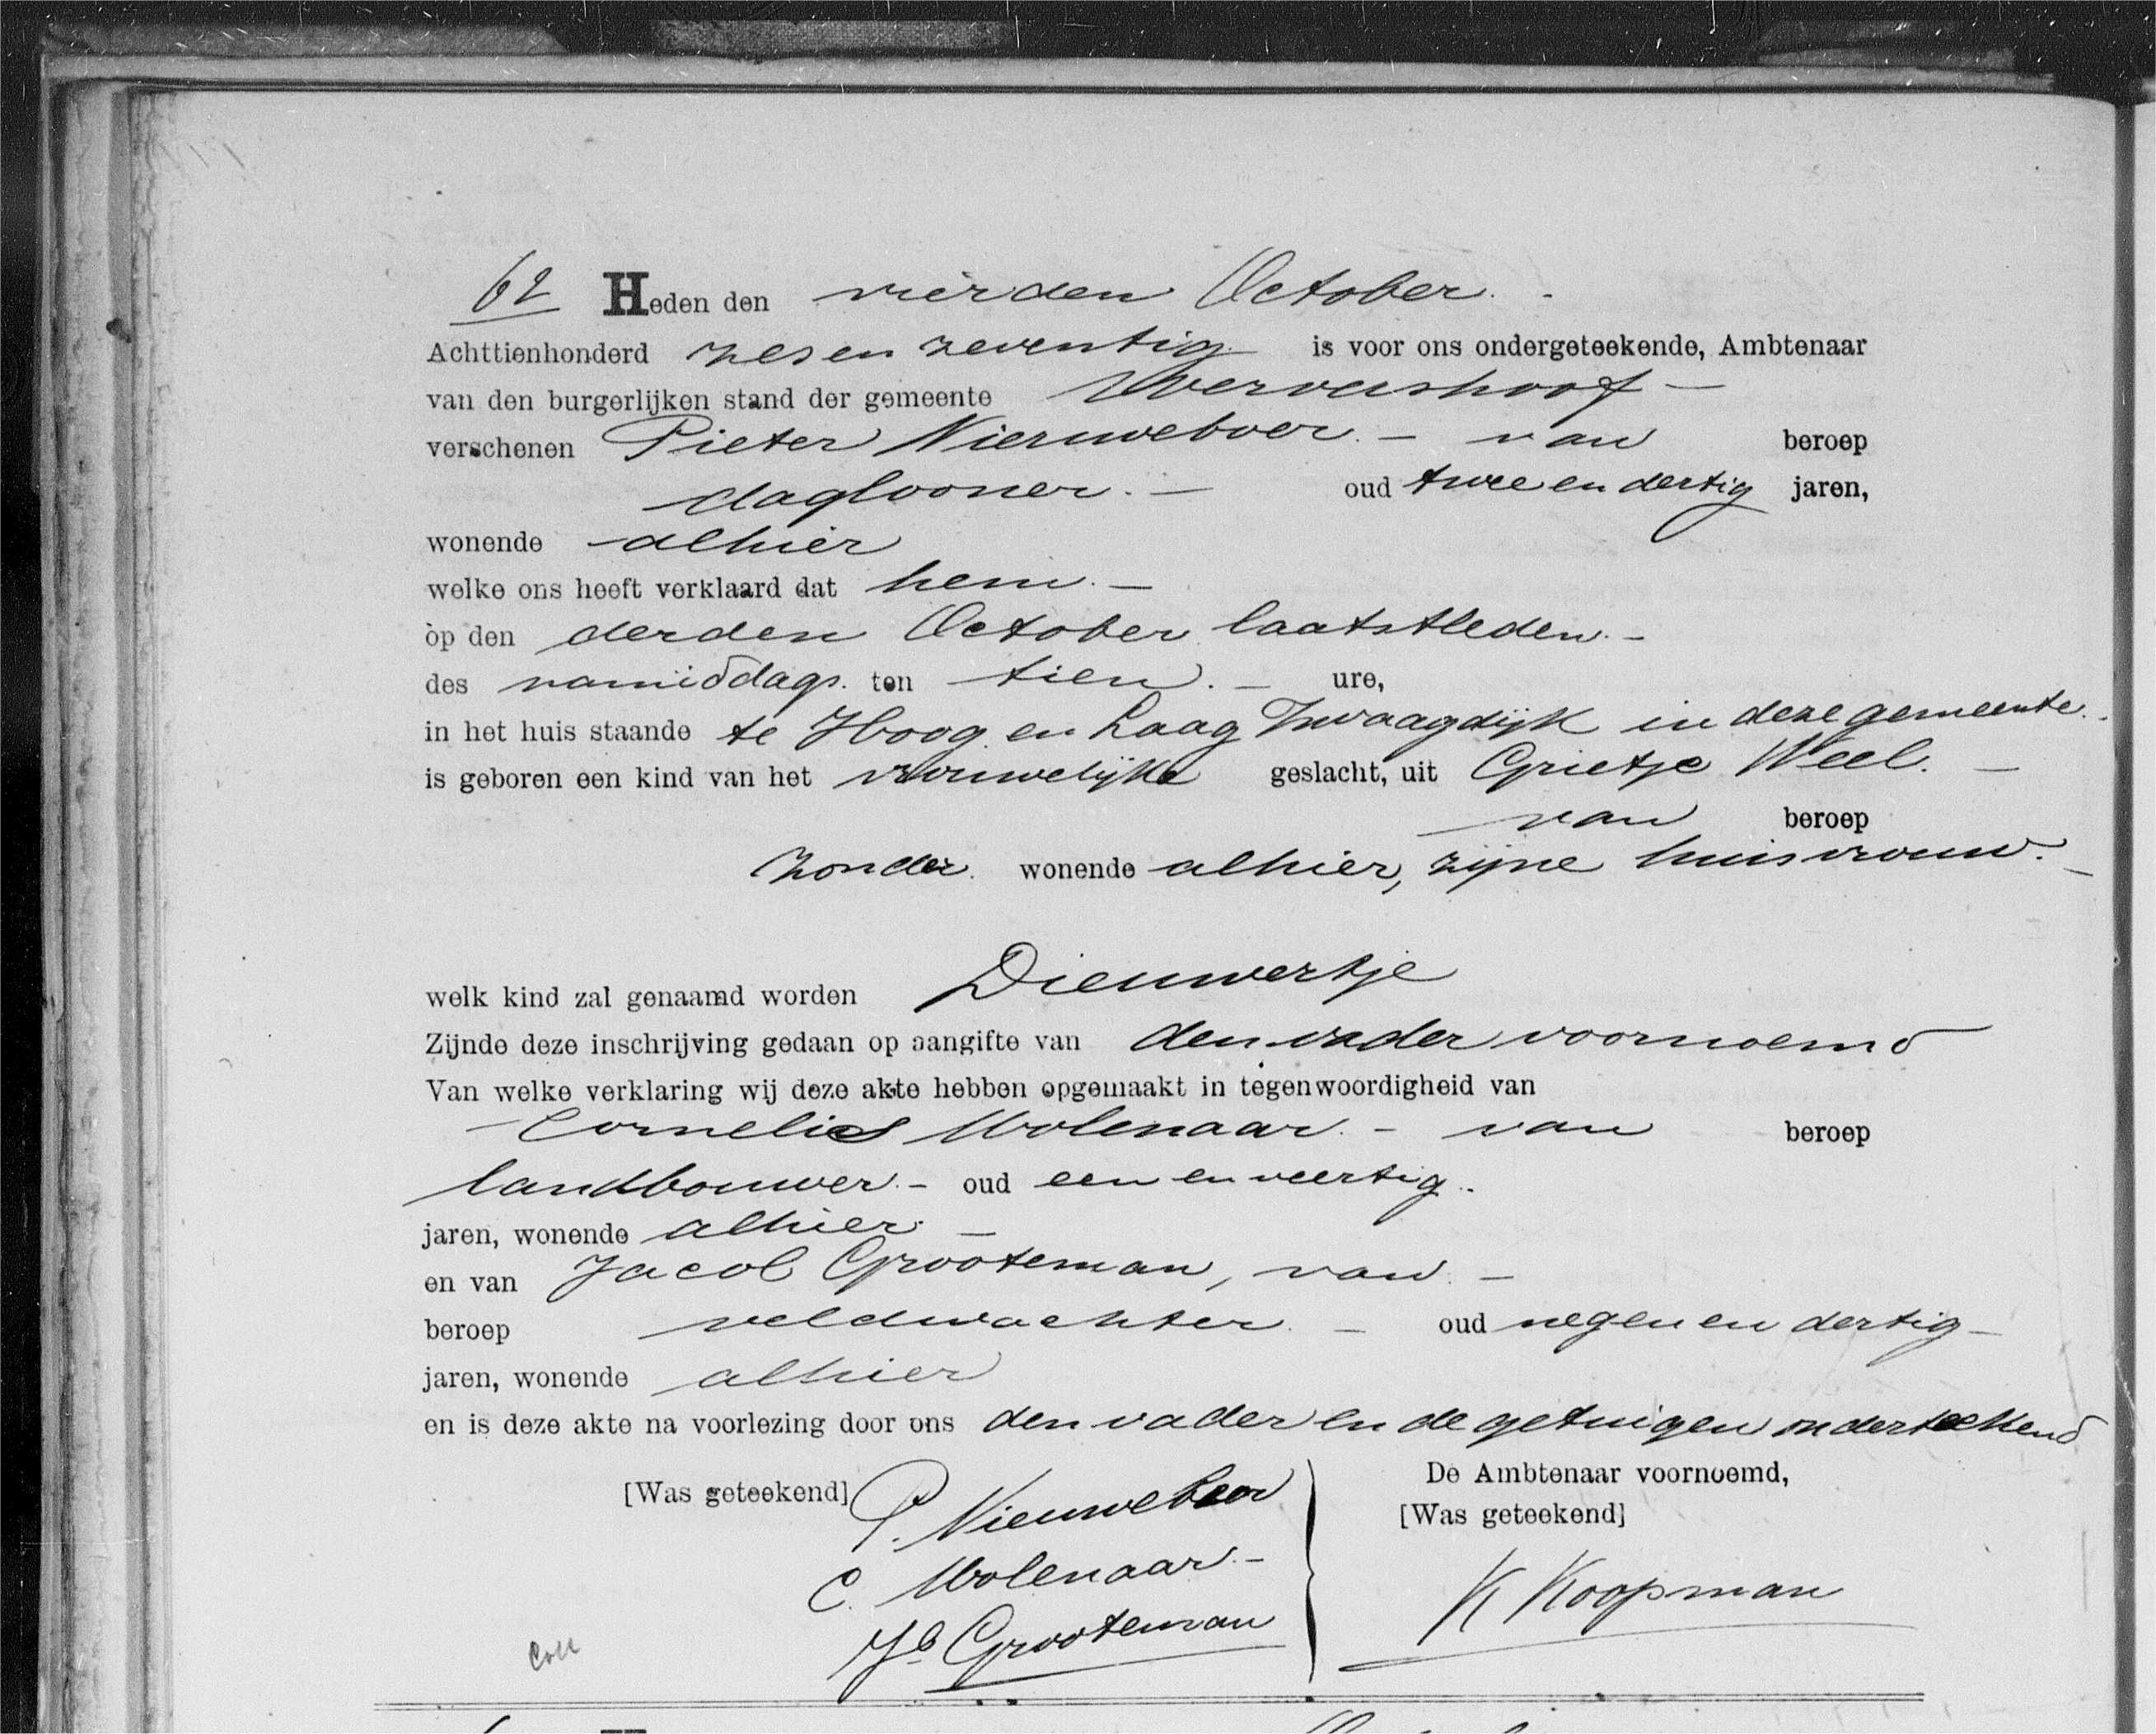 62 Heden den vierden October. -
Achttienhonderd zes en zeventig is voor ons ondergeteekende, Ambtenaar
van den burgerlijken stand der gemeente Wervershoof -
verschenen Pieter Nieuweboer. - van beroep
daglooner. - oud twee en dertig jaren,
wonende alhier
welke ons heeft verklaard dat hem. -
op den derden October laatstleden. -
des namiddags. ten tien. - ure,
in het huis staande te Hoog en Laag Zwaagdijk in deze gemeente.
is geboren een kind van het vrouwelijke geslacht, uit Grietje Weel. -
van beroep
zonder. wonende alhier, zijne huisvrouw. -
welk kind zal genaamd worden Dieuwertje
Zijnde deze inschrijving gedaan op aangifte van den vader voornoemd
Van welke verklaring wij deze akte hebben opgemaakt in tegenwoordigheid van
Cornelis Molenaar. - van beroep
landbouwer. - oud een en veertig.
jaren, wonende alhier. -
en van Jacob Grooteman, van. -
beroep veldwachter. - oud negen en dertig -
jaren, wonende alhier
en is deze akte na voorlezing door ons den vader en de getuigen onderteekend
[Was geteekend] P. Nieuweboer
C. Molenaar. -
Jb. Grooteman
De Ambtenaar voornoemd,
[Was geteekend]
K Koopman
Coll